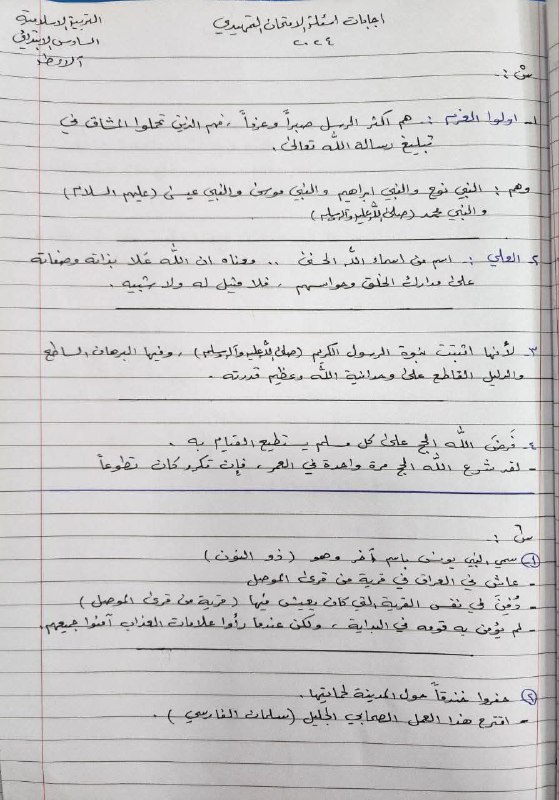 التربية الاسلامية
السادس الابتدائي
اجابات اسئلة الامتحان التمهيدي
٢٠٢٤
س١ :-
١- اولوا العزم :- هم اكثر الرسل صبراً وعزماً ، فهم الذين تحملوا المشاق في
تبليغ رسالة الله تعالى .
وهم : النبي نوح والنبي ابراهيم والنبي موسى والنبي عيسى (عليهم السلام)
والنبي محمد (صلى الله عليه وآله وسلم)
٢- العلي :- اسم من اسماء الله الحسنى .. ومعناه ان الله عَلا بذاته وصفاته
على مدارك الخلق وحواسهم ، فلا مثيل له ولا شبيه .
٣- لأنها اثبتت نبوة الرسول الكريم (صلى الله عليه وآله وسلم) ، وفيها البرهان الساطع
والدليل القاطع على وحدانية الله وعظيم قدرته .
٤- فَرَضَ الله الحج على كل مسلم يستطيع القيام به .
- لقد شرع الله الحج مرة واحدة في العمر ، فإن تكرر كان تطوعاً
س٢ :-
١- سمي النبي يونس باسم آخر وهو (ذو النون)
- عاش في العراق في قرية من قرى الموصل
- دُفِنَ في نفس القرية التي كان يعيش فيها (قرية من قرى الموصل)
- لم يؤمن به قومه في البداية ، ولكن عندما رأوا علامات العذاب آمنوا جميعهم .
٢- حفروا خندقاً حول المدينة لحمايتها .
- اقترح هذا العمل الصحابي الجليل (سلمان الفارسي) .